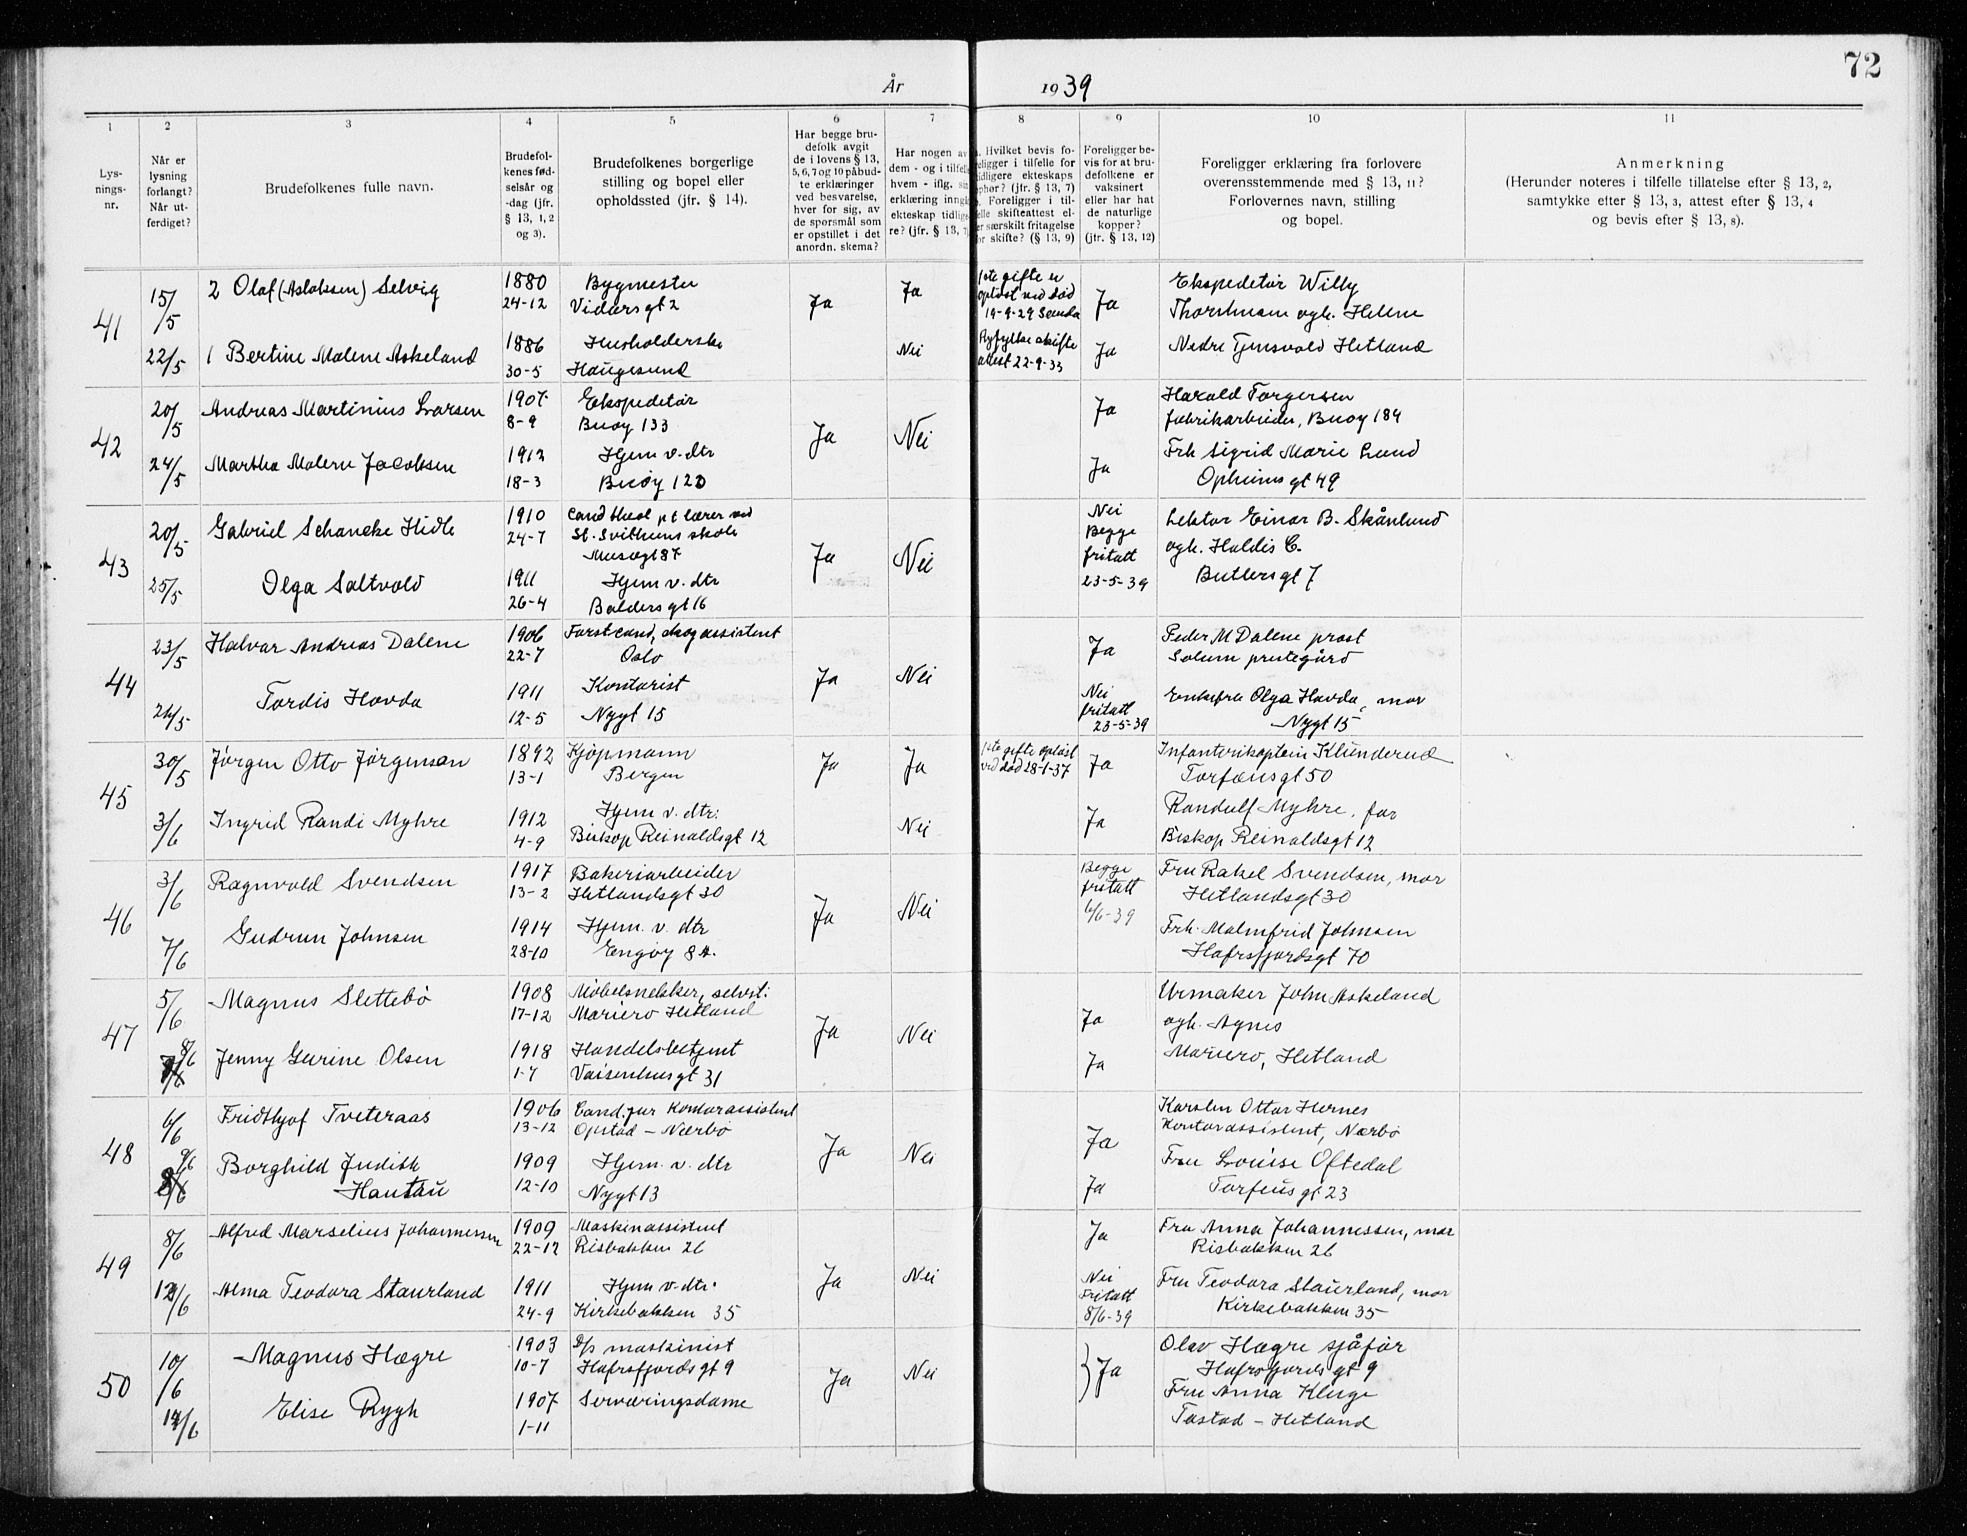 72
År 1939
1 2 3 4 5 6 7 8 9 10 11
Lysnings-nr.
Når er lysning forlangt? Når utferdiget?
Brudefolkenes fulle navn.
Brudefolkenes fødselsår og -dag (jfr. § 13, 1, 2 og 3).
Brudefolkenes borgerlige stilling og bopel eller opholdssted (jfr. § 14).
Har begge brudefolk avgit de i lovens § 13, 5, 6, 7 og 10 påbudte erklæringer ved besvarelse, hver for sig, av de spørsmål som er opstillet i det anordn. skema?
Har nogen av dem - og i tilfelle hvem - iflg. sin erklæring inngått ekteskap tidligere? (jfr. § 13, 7)
Hvilket bevis foreligger i tilfelle for tidligere ekteskaps ophør? (jfr. § 13, 7) Foreligger i tilfelle skifteattest eller særskilt fritagelse for skifte? (§ 13, 9)
Foreligger bevis for at brudefolkene er vaksinert eller har hat de naturlige kopper? (jfr. § 13, 12)
Foreligger erklæring fra forlovere overensstemmende med § 13, 11? Forlovernes navn, stilling og bopel.
Anmerkning (Herunder noteres i tilfelle tillatelse efter § 13, 2, samtykke efter § 13, 3, attest efter § 13, 4 og bevis efter § 13, 8).
41 15/5 2 Olaf (Aslaksen) Selvig 1880 24-12 Bygmester Vidarsgt 2 Ja Ja 1ste gifte er opløst ved død 19-9-29 Ja Ekspedetør Willy
Thorstensen ogh. Helene
22/5 1 Bertine Malene Askeland 1886 30-5 Husholderske Haugesund Nei Ryfylke skifte attest 22-9-33 Ja Nedre Tjensvold Hetland
42 20/5 Andreas Martinius Larsen 1907 8-9 Ekspedetør Buøy 133 Ja Nei Ja Harald Torgersen
fabrikarbeider, Buøy 184
24/5 Martha Malene Jacobsen 1912 18-3 Hjem v. dtr Buøy 123 Ja Frk Sigrid Marie Lund
Opheimsgt 49
43 20/5 Gabriel Schancke Hidle 1910 24-7 Cand theol pt lærer ved St. Svithuns skole Musegt 87 Ja Nei Nei Begge fritatt 23-5-39 Lektor Einar B. Skånlund
ogh. Haldis C.
Butlersgt 7
25/5 Olga Saltvold 1911 26-4 Hjem v. dtr Baldersgt 16
44 23/5 Halvar Andreas Dalene 1906 22-7 Forstcand, skogassistent Oslo Ja Nei Ja Peder M Dalene prost
Solum prestegård
26/5 Tordis Hovda 1911 12-5 Kontorist Nygt 15 Nei fritatt 23-5-39 Enkefru Olga Hovda, mor
Nygt 15
45 30/5 Jørgen Otto Jørgensen 1892 13-1 Kjøpmann Bergen Ja Ja 1ste gifte opløst ved død 28-1-37 Ja Infanterikaptein Klunderud
Torfæusgt 50
3/6 Ingrid Randi Myhre 1912 4-9 Hjem v. dtr: Biskop Reinaldsgt 12 Nei Ja Randulf Myhre, far
Biskop Reinaldsgt 12
46 3/6 Ragnvald Svendsen 1917 13-2 Bakeriarbeider Hetlandsgt 30 Ja Nei Begge fritatt 6/6-39 Fru Rakel Svendsen, mor
Hetlandsgt 30
7/6 Gudrun Johnsen 1914 28-10 Hjem. v. dtr Engøy 8A. Frk. Malmfrid Johnsen
Hafrsfjordsgt 70
47 5/6 Magnus Slettebø 1908 17-12 Møbelsnekker, selvst: Mariero Hetland Ja Nei Ja Urmaker John Askeland
ogh. Agnes
8/6 Jenny Gurine Olsen 1918 1-7 Handelsbetjent Vaisenhusgt 31 Ja Mariero, Hetland
48 6/6 Fridthjof Tveteraas 1906 13-12 Cand. jur Kontorassistent Opstad – Nærbø Ja Nei Ja Karsten Ottar Hernes
Kontorassistent, Nærbø
9/6 Borghild Judith Hantau 1909 12-10 Hjem. v. dtr Nygt 13 Ja Fru Louise Oftedal
Torfeusgt 23
49 8/6 Alfred Marselius Johannessen 1909 22-12 Maskinassistent Risbakken 26 Ja Nei Ja Fru Anna Johannessen, mor
Risbakken 26
12/6 Alma Teodora Staurland 1911 24-9 Hjem v. dtr. Kirkebakken 35 Nei Fritatt 8/6-39 Fru Teodora Staurland, mor
Kirkebakken 35
50 10/6 Magnus Hægre 1903 10-7 D/s maskinist Hafrsfjordsgt 9 Ja Nei Ja Olav Hægre sjåfør
Hafrsfjordsgt 9
14/6 Elise Rygh 1907 1-11 Serveringsdame Fru Anna Kluge
Tastad – Hetland